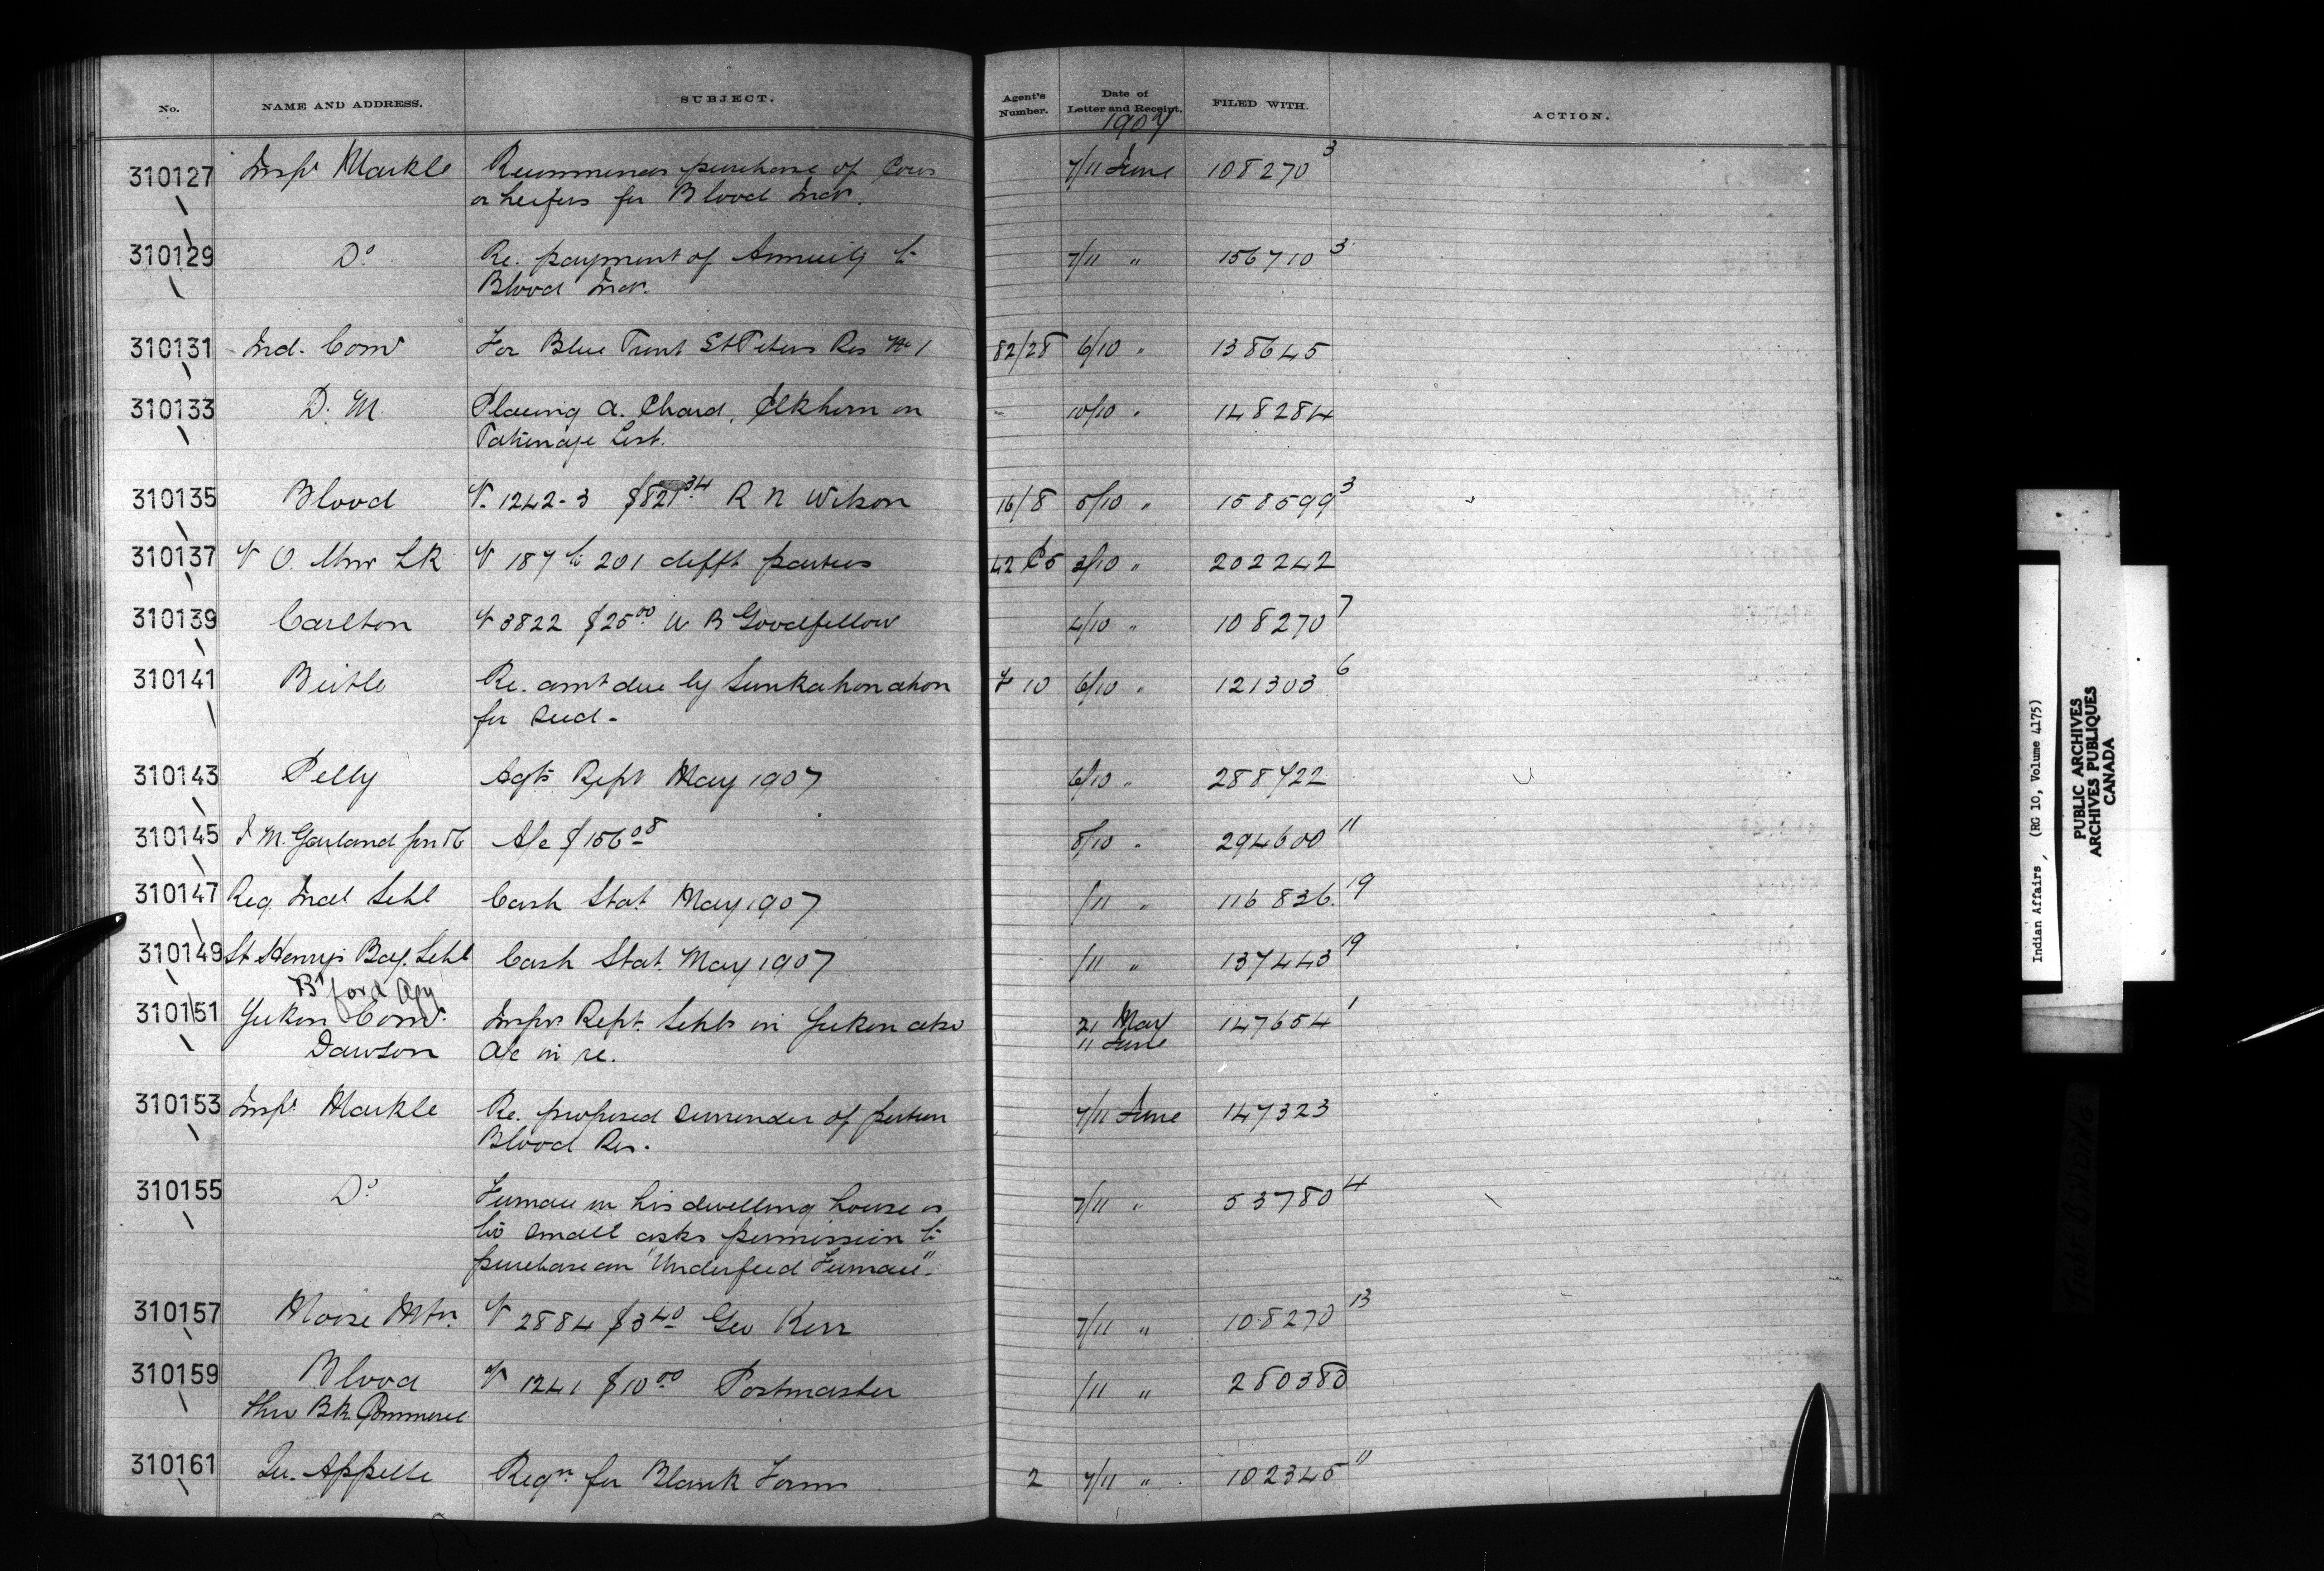 No. NAME AND ADDRESS. SUBJECT. Agent's Number. Date of Letter and Receipt. FILED WITH. ACTION.
1907
310127 Inspr Markle Recommends purchase of Cows 7/11 June 108270 3
or heifers for Blood Inds.
310129 Do Re. payment of Annuity to 7/11 " 156710 3
Blood Inds.
310131 Ind. Comr For Blue Print St Peters Res No 1 82/28 6/10 " 138645
310133 D. M. Placing A. Chard, Elkhorn on 10/10 " 148284
Patronage List.
310135 Blood V. 1242-3 $821 34 R N Wilson 16/8 5/10 " 158599 3
310137 V O. LR V 187 to 201 defft parties 42 3/10 " 202242
310139 Carlton V 3822 $25 00 W B Goodfellow 4/10 " 108270 7
310141 Birtle Re. amt due by Sunkahonahon 10 6/10 " 121303 6
for seed -
310143 Pelly Agts Rept May 1907 6/10 " 288722
310145 J M. Garland Son & Co A/c $156 08 8/10 " 294600 11
310147 Reg Indl Schl Cash Stat. May 1907 /11 " 116836 19
310149 St Henrys Bag. Schl Cash Stat. May 1907 /11 " 137443 19
B'ford Agy
310151 Yukon Comr. Inspr Rept. Schls in Yukon also 21 May 147654 1
Dawson A/c in re. 11 June
310153 Inspr Markle Re. proposed surrender of portion 7/11 June 147323
Blood Res.
310155 Do Furnace in his dwelling house is 7/11 " 53780 4
too small asks permission to
purchase an "Underfeed Furnace".
310157 Moose Mtn. V 2884 $3 40 Geo Kerr 7/11 " 108270 13
310159 Blood V 1241 $10 00 Postmaster /11 " 280380
thro Bk. Commerce
310161 Qu. Appelle Reqn for Blank Forms 2 7/11 " 102345 11
Indian Affairs, (RG 10, Volume 4175)
PUBLIC ARCHIVES
ARCHIVES PUBLIQUES
CANADA